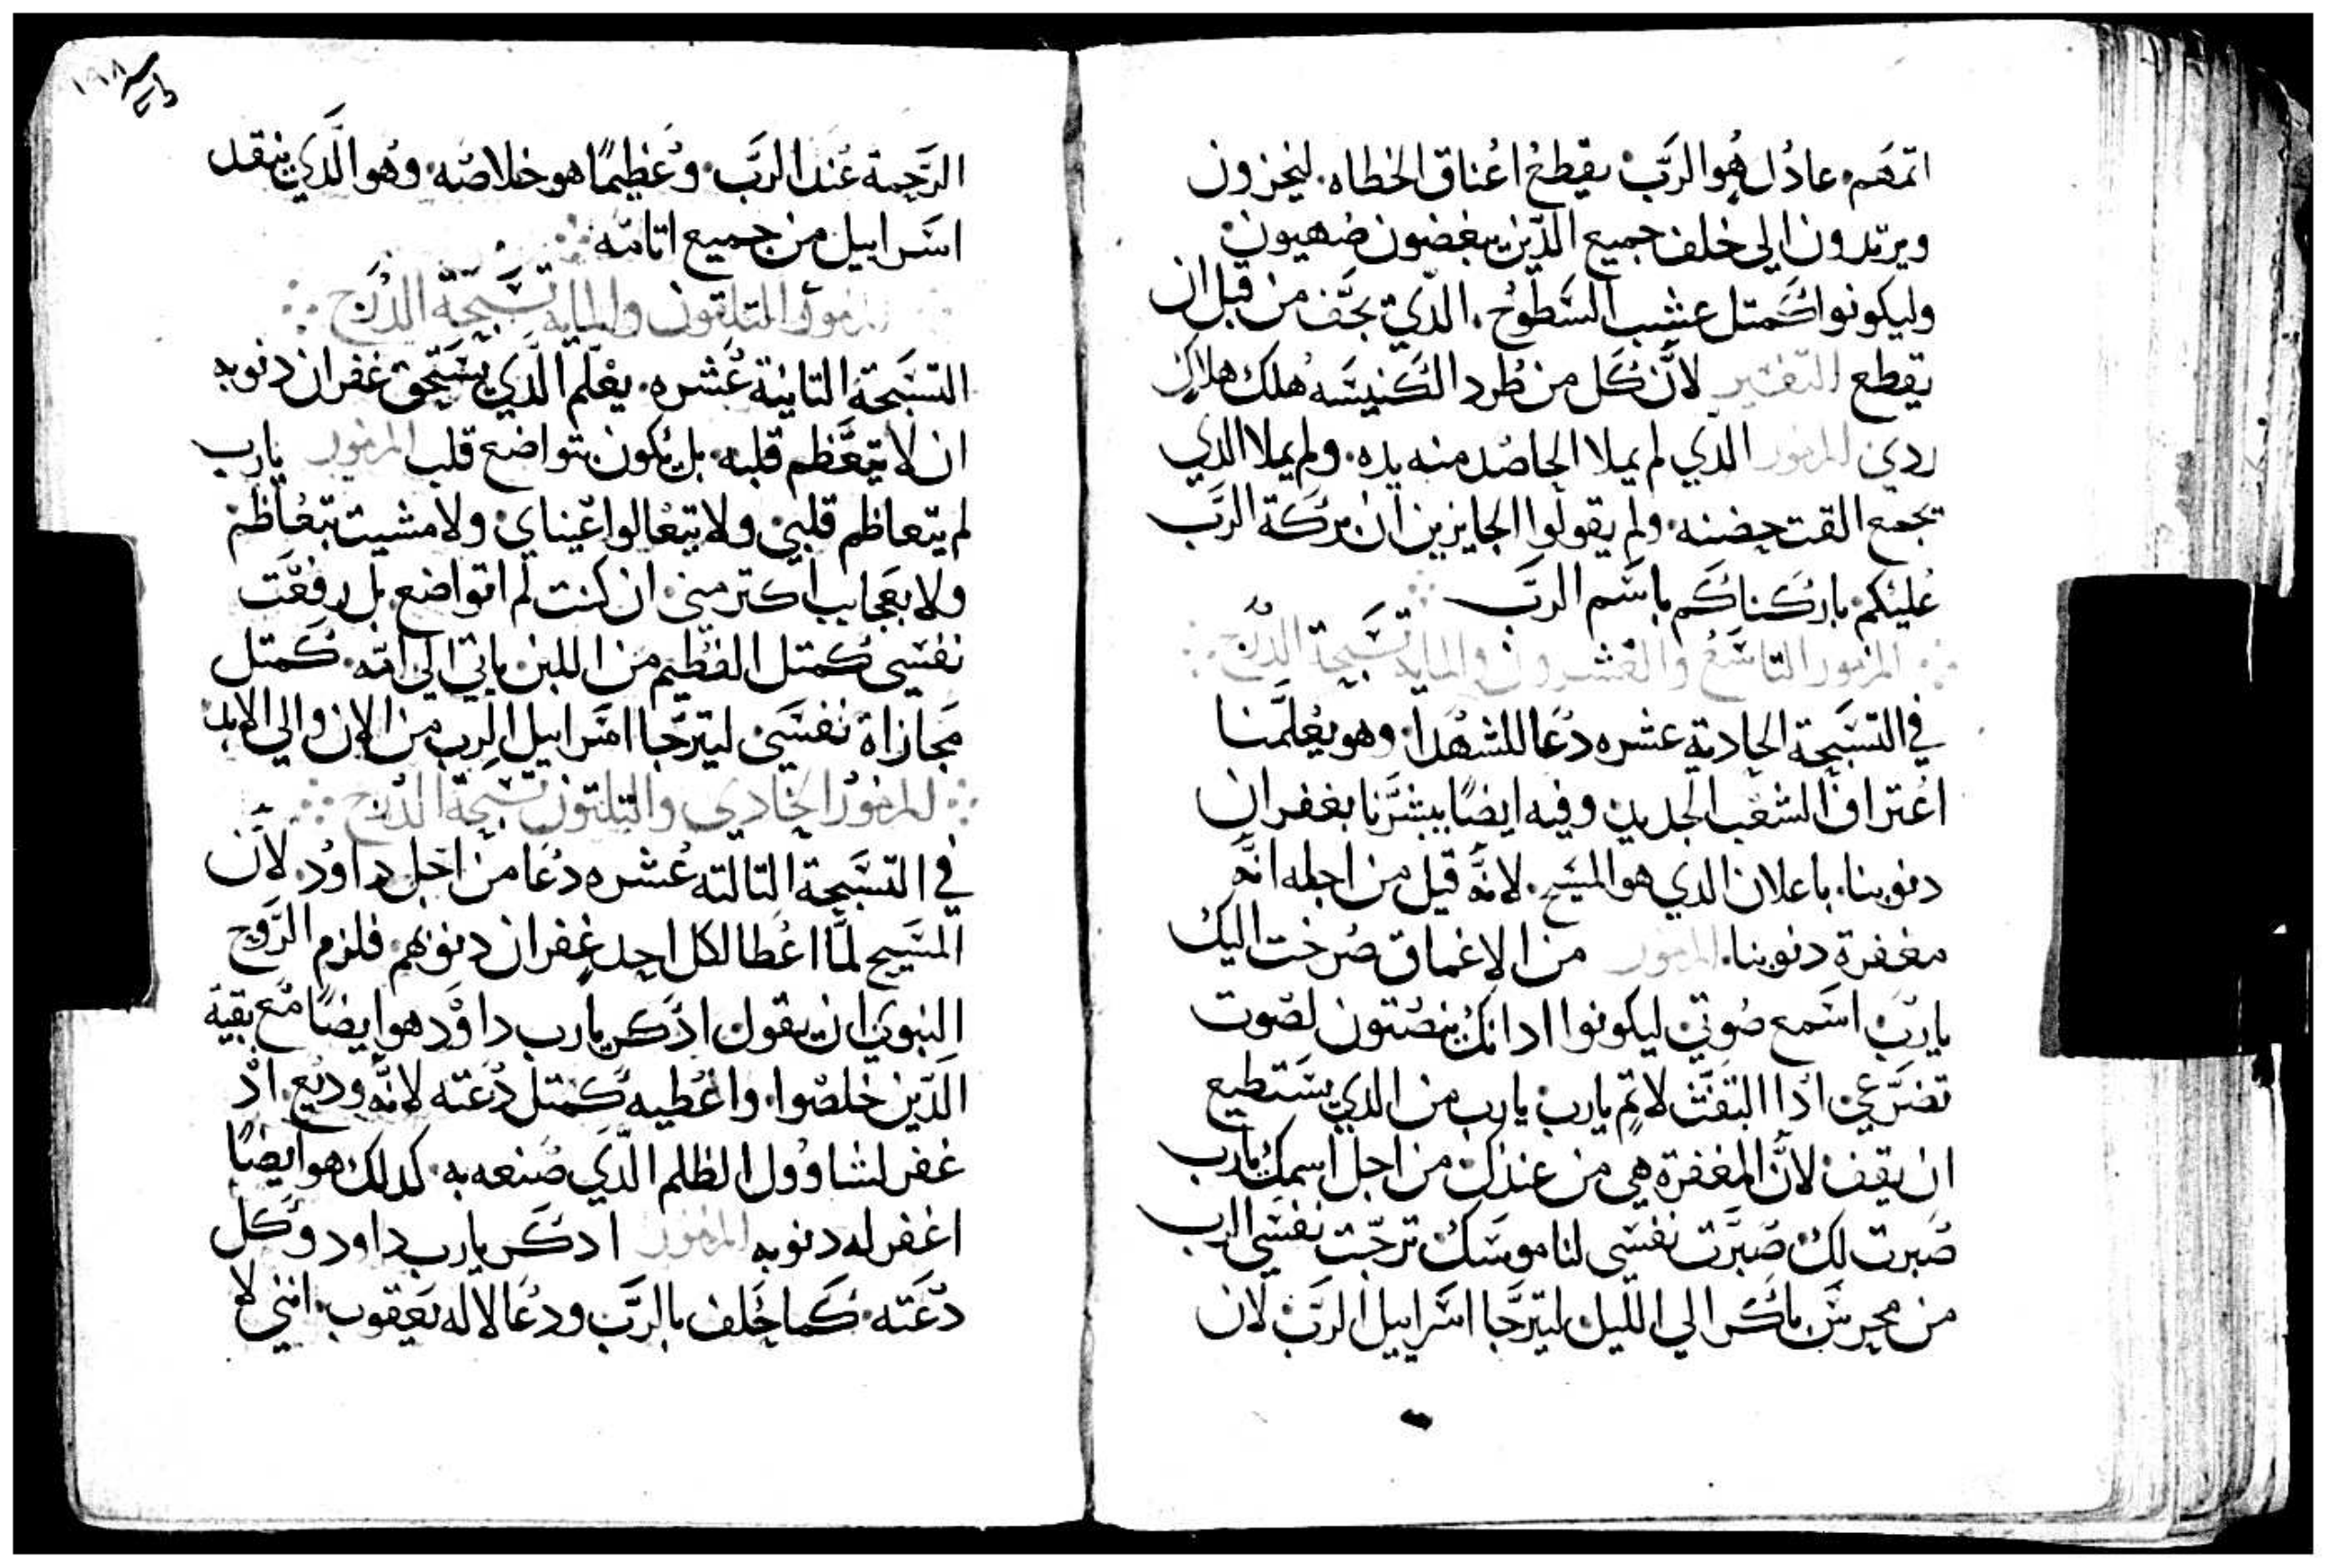 اتمهم. عادل هو الرب يقطع اعناق الخطاه. ليخزون
ويرتدون الي خلف جميع الذين يبغضون صهيون
وليكونوا كمتل عشب السطوح. الذي يجف من قبل ان
يقطع التفسير لان كل من طرد الكنيسه هلك هلاك
ردي المزمور الذي لم يملا الحاصد منه يده. ولم يملا الذي
يجمع القت حضنه. ولم يقولوا الجايزين ان بركة الرب
عليكم. باركناكم باسم الرب
المزمور التاسع والعشرون والمايه تسبحة الدرج
في التسبحة الحادية عشره دعا للشهدا. وهو يعلمنا
اعتراف الشعب الجديد وفيه ايضًا يبشرنا بغفران
دنوبنا. باعلان الدي هو المسيح. لانه قيل من اجله انه
مغفرة دنوبنا. المزمور من الاعماق صرخت اليك
يارب اسمع صوتي ليكونوا ادانك ينصتون لصوت
تضرعي ادا التفت لاتم يارب يارب من الدي يستطيع
ان يقف لان المغفرة هي من عندك من اجل اسمك يارب
صبرت لك صبرت نفسي لناموسك ترجت نفسي الرب
من محرس باكر الي الليل ليترجا اسراييل الرب لان
١٩٨
الرحمة عند الرب. وعظيمًا هو خلاصه. وهو الذي ينقد
اسراييل من جميع اتامه
المزمور التلتون والمايه تسبحة الدرج
التسبحة التانية عشره. يعلم الذي يستحق غفران دنوبه
ان لا يتعظم قلبه. بل يكون بتواضع قلب المزمور يارب
لم يتعاظم قلبي ولا يتعالوا عيناي ولا مشيت بتعاظم
ولا بعجايب اكتر مني. ان كنت لم اتواضع بل رفعت
نفسي كمتل الفطيم من اللبن ياتي الي امه. كمتل
مجازاة نفسي ليترجا اسراييل الرب من الان والي الابد
المزمور الحادي والتلتون تسبحة الدرج
في التسبحة التالته عشره دعا من اجل داود. لان
المسيح لما اعطا لكل احد غفران دنوبهم. فلزم الروح
النبوي ان يقول ادكر يارب داود هو ايضًا مع بقية
الذين خلصوا. واعطيه كمتل دعته لانه وديع. اد
غفر لشاوول الظلم الذي صنعه به. كدلك هو ايضًا
اغفر له دنوبه المزمور ادكر يارب داود وكل
دعته. كما حلف بالرب ودعا لاله يعقوب. انني لا